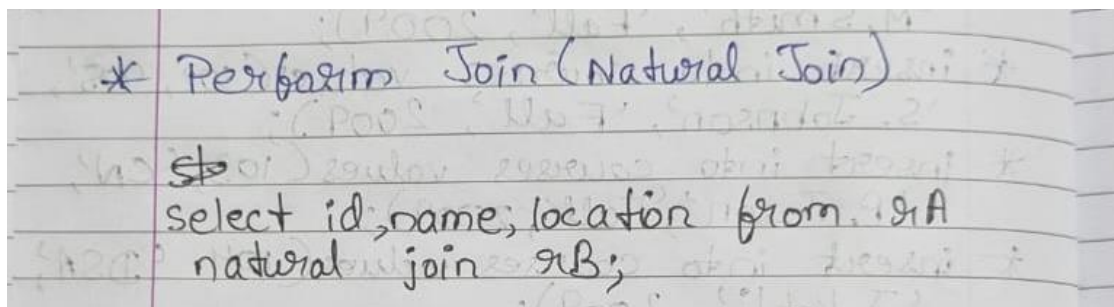 * Perform Join (Natural Join)
select id, name, location from rA
natural join rB;